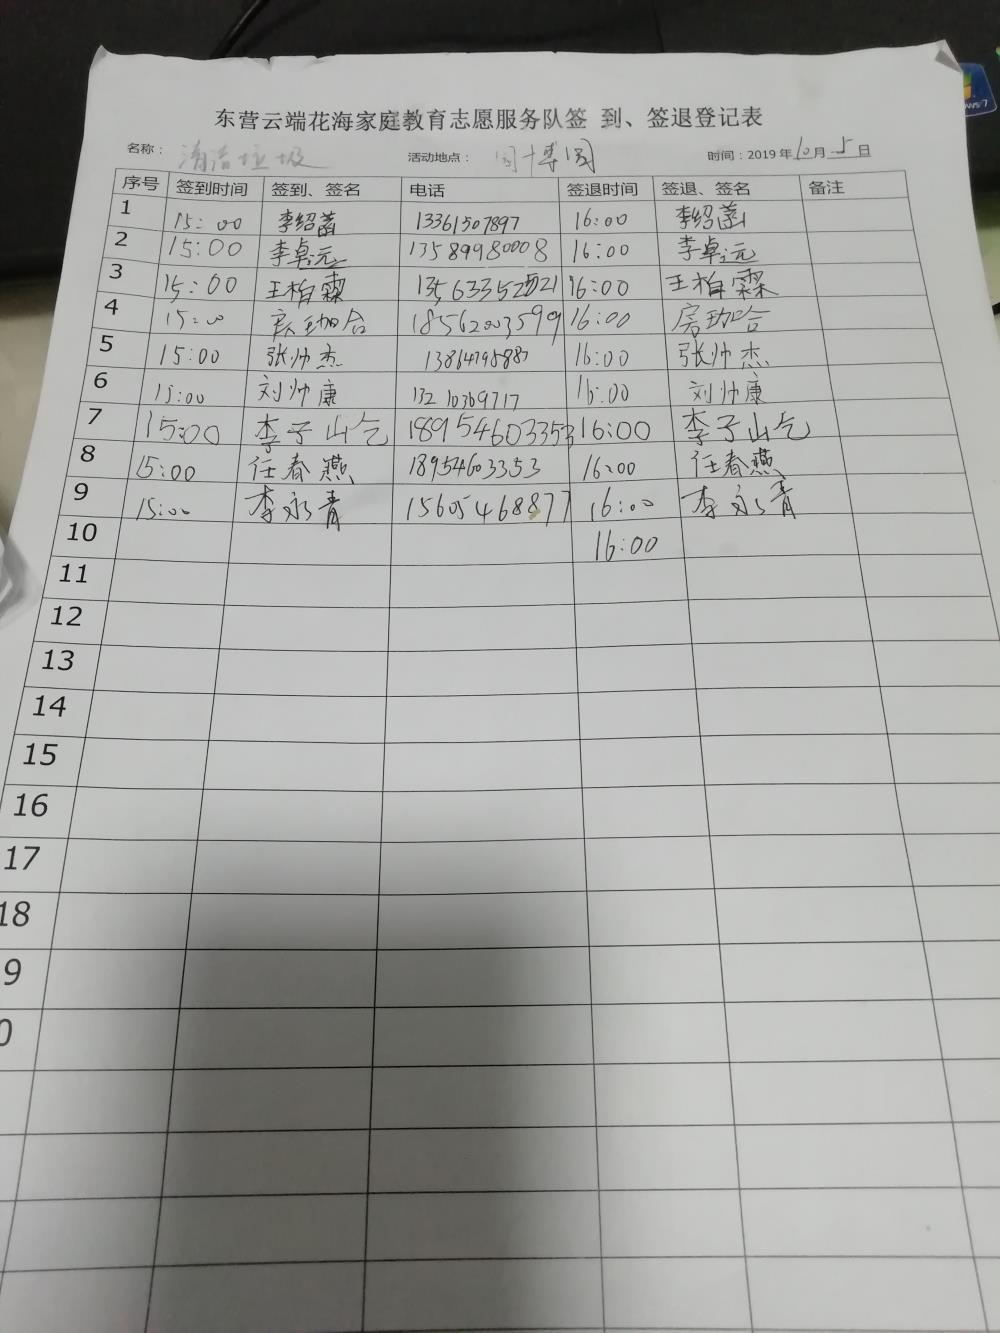 东营云端花海家庭教育志愿服务队签 到、签退登记表
名称： 清洁垃圾 活动地点： 园博园 时间：2019年10月5日
序号 签到时间 签到、签名 电话 签退时间 签退、签名 备注
1 15:00 李绍菡 13361507897 16:00 李绍菡
2 15:00 李卓远 13589980008 16:00 李卓远
3 15:00 王柏霖 16:00 王柏霖
4 18562003599 16:00
5 15:00 张帅杰 16:00 张帅杰
6 15:00 刘帅康 13210369717 刘帅康
7 15:00 李子山乞 18954603353 16:00 李子山乞
8 15:00 任春燕 18954603353 16:00 任春燕
9 15:00 李永青 15605468877 16:00 李永青
10 16:00
11
12
13
14
15
16
17
18
9
0